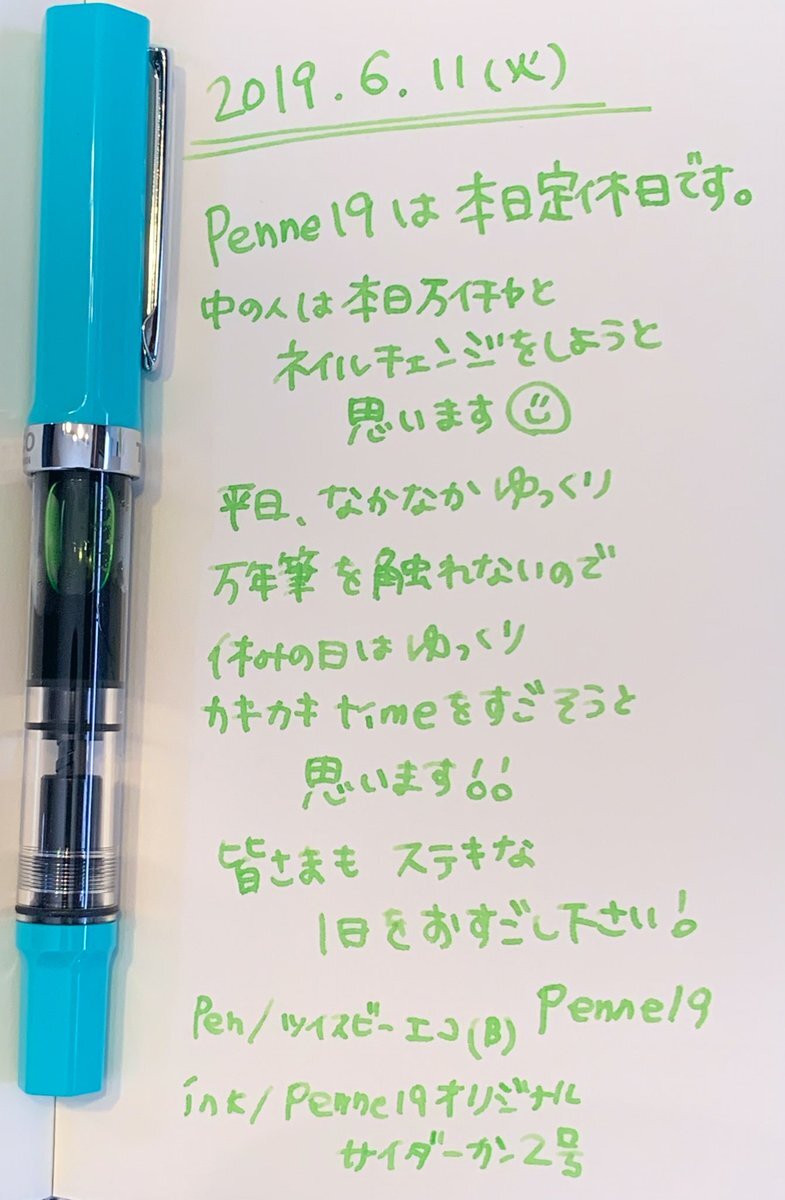 2019.6.11(火)
Penne19は本日定休日です。
中の人は本日万仔ヤと
ネイルチェンジをしようと
思います
平日、なかなかゆっくり
万年筆を触れないので
休みの日はゆっくり
カキカキtimeをすごそうと
思います!!
皆さまも ステキな
1日をおすごし下さい!
Pen/ツイスビーエコ(B) Penne19
ink/Penne19オリジナル
サイダーカン2号